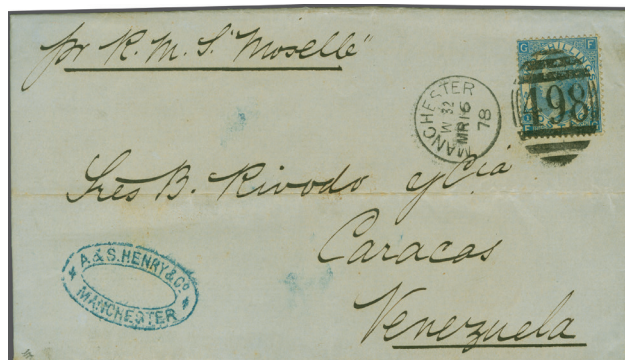 pr R. M. S. "Moselle"
G F
SHILLIN
498
MANCHESTER
W 32
MR 16
78
Sres B. Rivodo y Cia
Caracas
Venezuela
A. & S. HENRY & Co
MANCHESTER